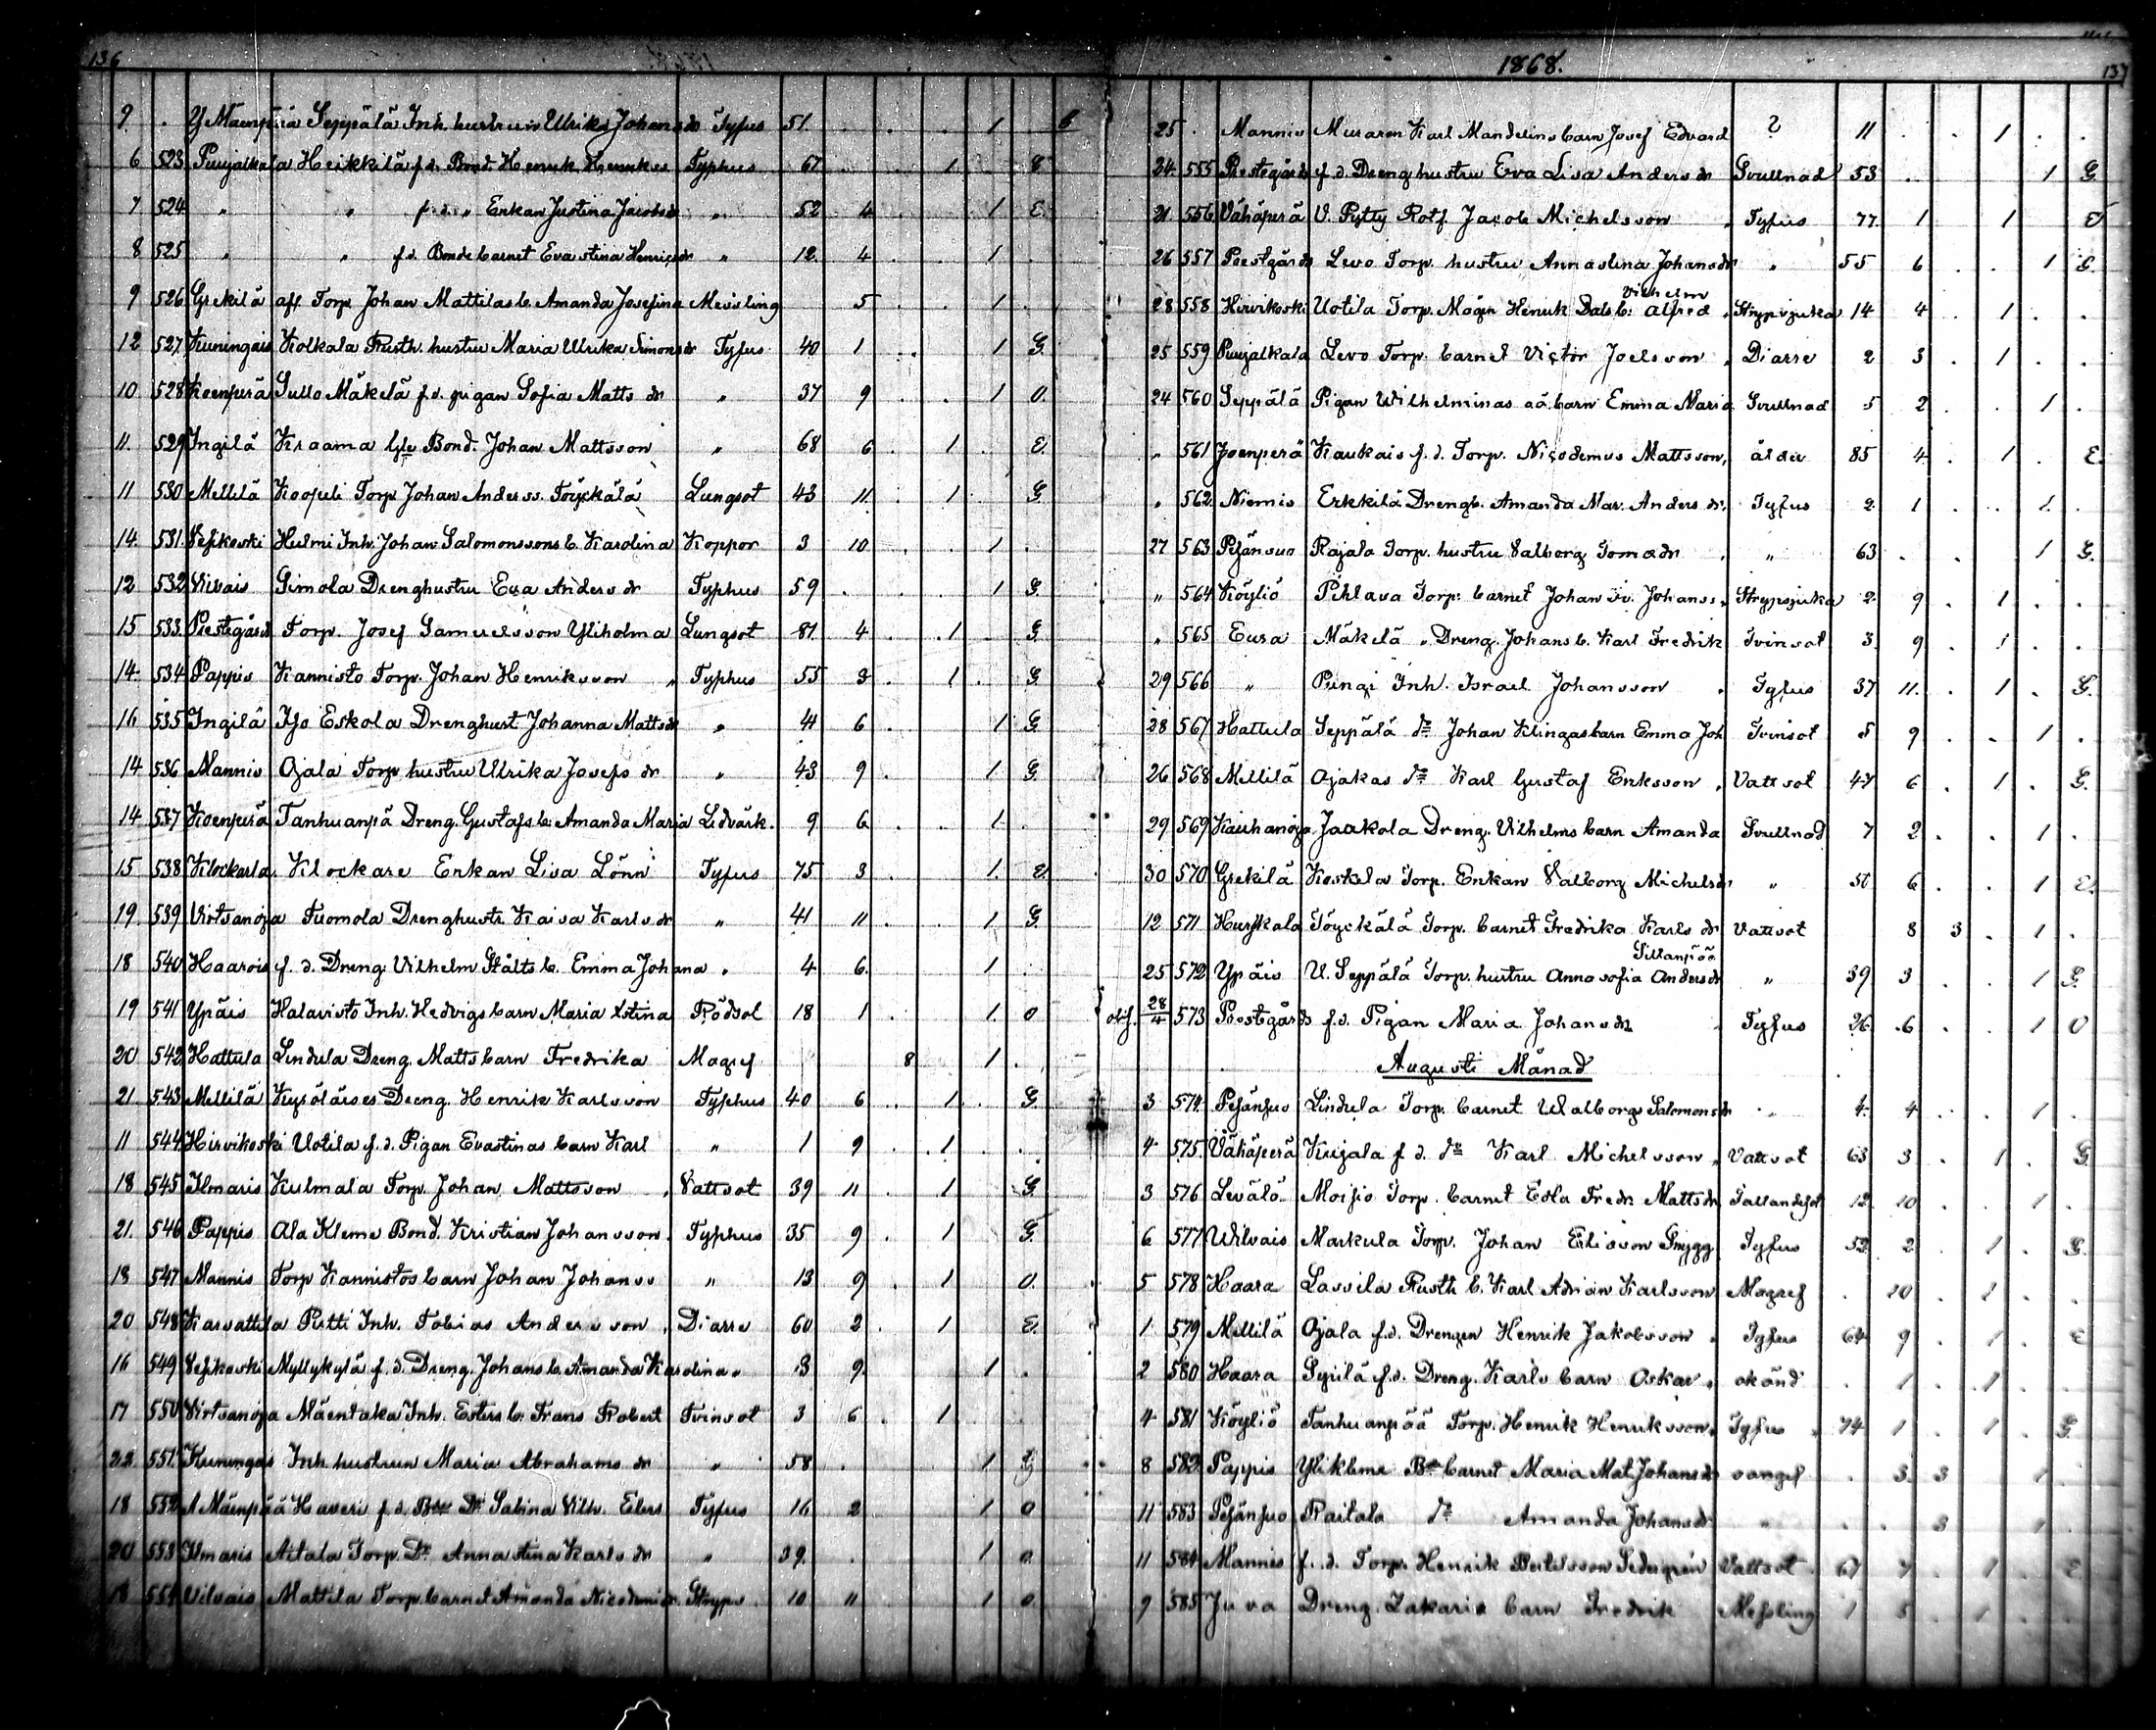 136
9. . Y Mäenpää Seppälä Inh. hustrun Ulrika Johans dr Tyfus 51. . . . 1
6 523. Punjalkala Heikkilä f.d. Bond. Henrik Henrikss Typhus 67 . . 1 . E
7 524 " " f.d. " Enkan Justina Jacobsd " 52 4 . . 1 E.
8 525 " " f.d. Bonde barnet Eva stina Henricsdr " 12 4 . . 1
9 526. Grekilä aff. Torp. Johan Mattilas b. Amanda Josefina Messling 5 . . 1 .
12 527. Kuningais Kolkala Rusth. hustru Maria Ulrika Simonsdr Tyfus 40 1 . . 1 G.
10 528 Koenperä Sullo Mäkelä f.d. pigan Sofia Matts dr " 37 9 . . 1 O.
11. 529 Ingilä Kraama Bond. Johan Mattsson " 68 6 . 1 . E.
11 530 Mellilä Koopeli Torp. Johan Anderss. Töyckälä Lungsot 43 11. . 1 . G.
14. 531. Vesikoski Helmi Inh. Johan Salomonssons b. Karolina Koppor 3 10 . . 1 .
12 532 Vilvais Simola Drenghustru Eva Anders dr Typhus 59 . . . 1 G.
15 533. Prestegård Torp. Josef Samuelsson Yliholma Lungsot 81. 4 . 1 . G.
14. 534. Pappis Kannisto Torp. Johan Henriksson Typhus 55 8 . 1 . G.
16 535 Ingilä Iso Eskola Drenghust Johanna Mattsdr " 4 6 . . 1 G.
14 536 Mannis Ojala Torp hustru Ulrika Josefs dr " 43 9 . . 1 G.
14 537 Koenperä Tanhuanpä Dreng. Gustafs b. Amanda Maria Ledvärk. 9 6 . . 1.
15 538 Klockarla. Klockare Enkan Lisa Lönn Tyfus 75 3 . . 1. E.
19 539 Virtsanoja Tuomola Drenghustr. Kaisa Karlsdr " 41 11 . . 1 G.
18 540 Haarois f.d. Dreng. Vilhelm Ståhls b. Emma Johana " 4 6. . . 1 .
19 541 Ypäis Halavisto Inh. Hedvigs barn Maria Xstina Rödsot 18 1 . . 1. O
20 542 Hattula Lindula Dreng. Matts barn Fredrika Magref 8 . 1 .
21. 543 Mellilä Dreng. Henrik Karlsson Typhus 40 6 . . 1. . G.
11 544 Hirvikoski Uotila f.d. Pigan Evastinas barn Karl " 1 9 . . 1 . .
18 545 Ilmaris Kulmala Torp. Johan Mattsson Vattsot 39 11 . 1 . G.
21. 546 Pappis Ala Kleme Bond. Kristian Johansson. Typhus 35 9 . 1 . G.
18 547 Mannis Torp Kannistos barn Johan Johanss " 13 9 . 1 O.
20 548 Karsattila Petti Inh. Tobias Andersson Diarre 60 2 . 1 . E.
16 549 Vesikoski Myllykylä f.d. Dreng. Johans b. Amanda Karolina " 3 9 . . 1 .
17 550 Virtsanoja Mäentaka Inh. Esters b. Frans Robert Tvinsot 3 6 . 1
22 551. Kuningas Inh. hustrun Maria Abrahams dr " 58 . . . 1 G
18 552 A Mäenpää Haveri f.d. Dr Sabina Vilh. Eilers Tyfus 16 2 . . 1 O
20 553 Ilmaris Aitala Torp. Dr Anna stina Karls dr " 39. . . . 1 O.
18 554 Vilvais Mattila Torp. barnet Amanda Nicodemi dr Stryps. 10 11 . . 1 O
1868.
137
25 . Mannis Muraren Karl Mandelins barn Josef Edvard ? 11 . . 1 . .
24. 555 Prestegårds f.d. Drenghustru Eva Lisa Anders dr Svullnad 53 . . . 1 G.
21 556 Vähäperä V. Pytty Rotf. Jacob Michelsson Tyfus 77. 1 1 E
26 557 Prestgårds Levo Torp. hustru Annastina Johansdr " 55 6 . . 1 G.
Vilhelm
28 558 Hirvikoski Uotila Torp. Mågen Henrik Dals b. Alfred Strypsjuka 14 4 . 1 . .
25 559 Punjalkala Levo Torp. barnet Victor Joelsson Diarre 2 3 . 1 . .
24 560 Seppälä Pigan Wilhelminas oä. barn Emma Maria Svullnad 5 2 . . 1 .
" 561 Joenperä Kaukais f.d. Torp. Nicodemus Mattsson, ålder 85 4 . 1 . E.
" 562. Niemis Erkkilä Drengb. Amanda Mar. Anders dr. Tyfus 2 1 . . 1.
27 563 Pesänsuo Rajala Torp. hustru Valborg Tomadr " 63 . . . 1 G.
" 564 Köyliö Pehlava Torp. barnet Johan Johanss. Strypsjuka 2 9 . 1 . .
" 565 Eura Mäkelä " Dreng. Johans b. Karl Fredrik Tvinsot 3. 9 . 1 . .
29 566 " Pungi Inh. Israel Johansson Tyfus 37 11. . 1 . G.
28 567 Hattula Seppälä do Johan Klingas barn Emma Joh Tvinsot 5 9 . . 1 .
26 568 Mellilä Ojakas do Karl Gustaf Eriksson Vattsot 47 6 . 1 . G.
29 569 Kauhanoja Jaakola Dreng. Vilhelms barn Amanda Svullnad 7 2 . . 1 .
30 570 Grekilä Koskela Torp. Enkan Valborg Michelsdr " 50 6 . . 1 E.
12 571 Hurskala Töyckälä Torp. barnet Fredrika Karls dr Vattsot 8 3 . 1 .
Sillanpää
25 572 Ypäis U. Seppälä Torp. hustru Anna sofia Andersdr " 39 3 . . 1 G.
28/4 573 Prestgårds f.d. Pigan Maria Johansdr Tyfus 26 6 . . 1 O
Augusti Månad
3 574 Pesänsuo Lindula Torp. barnet Walborg Salomonsdr " 4 4 . . 1 .
4 575. Vähäperä Kuijala f.d. do Karl Michelsson Vattsot 63 3 . 1 . G.
3 576 Levälä Moisio Torp. barnet Eda Fredr. Mattsdr Fallandesot 12 10 . . 1 .
6 577 Wilvais Markula Torp. Johan Elisson Smygg Tyfus 52 2 . 1 . G.
5 578 Haara Lassila Rusth. b. Karl Adrian Karlsson Magref . 10 . 1 . .
1 579 Mellilä Ojala f.d. Drengen Henrik Jakobsson Tyfus 64 9 . 1 . E
2 580 Haara f.d. Dreng. Karls barn Oskar okänd . 1 . 1 .
4 581 Köyliö Tanhuanpää Torp. Henrik Henriksson. Tyfus 74 1 . 1 . G.
8 582 Pappis Ylikleme barnet Maria Mat. Johansdr . 3 3 1 .
11 583 Pesänsuo Raitala do Amanda Johansdr " . . 3 1 .
11 584 Mannis f.d. Torp. Henrik Bertilsson Sedergrén Vattsot 67 7 . 1 . E
9 585 Juva Dreng. Zakaris barn Fredrik Messling 1 5 . 1 . .